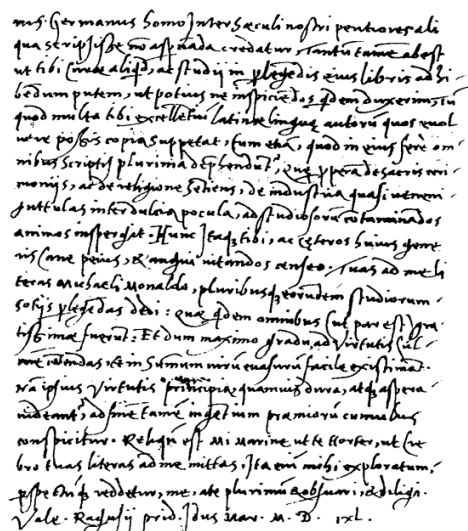 mus. Germanus homo Inter sæculi nostri peritiores ali
qua scripsisse nõ aspernãda credatur, Tantũ tamẽ abest
ut tibi curæ aliqd, ac studii in plegẽdis eius libris adhi
bẽdum putem, ut potius ne inspiciẽdos qdem duxerim: cũ
quod multa tibi excellẽtiũ latinæ linguæ autorũ quos euol
uere possis copia suppetat, tum etiã, quod in eius ferè om
nibus scriptis plurima dephendunt, quæ pperã de sacris ceri
monijs, ac de religione sẽtiens, de industria quasi ueneni
guttulas inter dulcia pocula, ad studiosorũ cõtaminãdos
animos inspergat. Hunc Itaq tibi, ac cæteros huius gene
ris Cane peius, & angui uitandos censeo. Tuas ad me li
teras Michaeli Monaldo, pluribusq eorundem studiorum
sotijs plegẽdas dedi: quæ qdem omnibus (ut par est) gra
tissimæ fuerũt: Et dum maximo gradu, ad Virtutis cul
mẽ cõtendas, te in summum uirũ euasurũ facile existimãt.
Nã ipsius Virtutis principia, quamuis dura, atq aspera
uideant, ad finẽ tamẽ ingẽtium præmiorũ cumulus
conspicitur. Reliqũ est Mi Marine ut te horter, ut cre
bro tuas literas ad me mittas. Ita eñ mihi exploratum,
pspectũq reddetur, me, a te plurimũ & obseruari, & diligi.
Vale. Ragusii prid. Idus Mar. M. D. IXL.